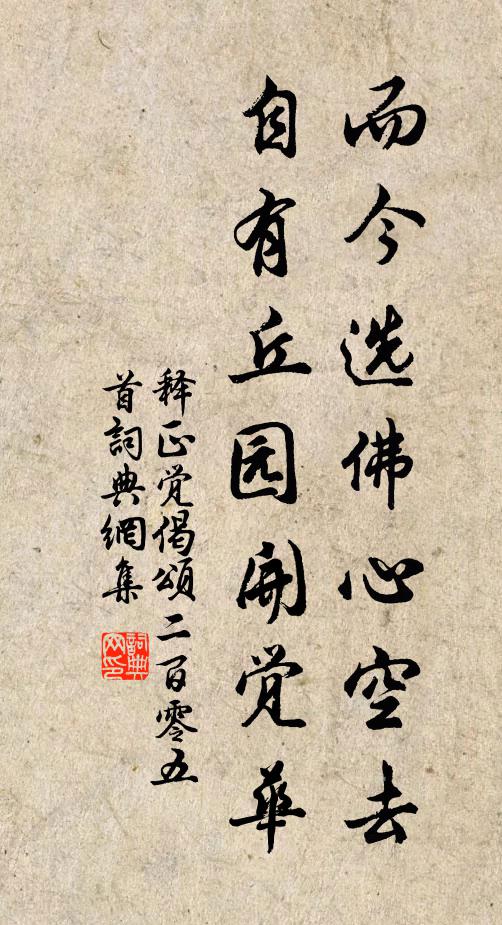 而今选佛心空去
自有丘园开觉华
释正觉偈颂二百零五
首詞典網集
詞典
网印